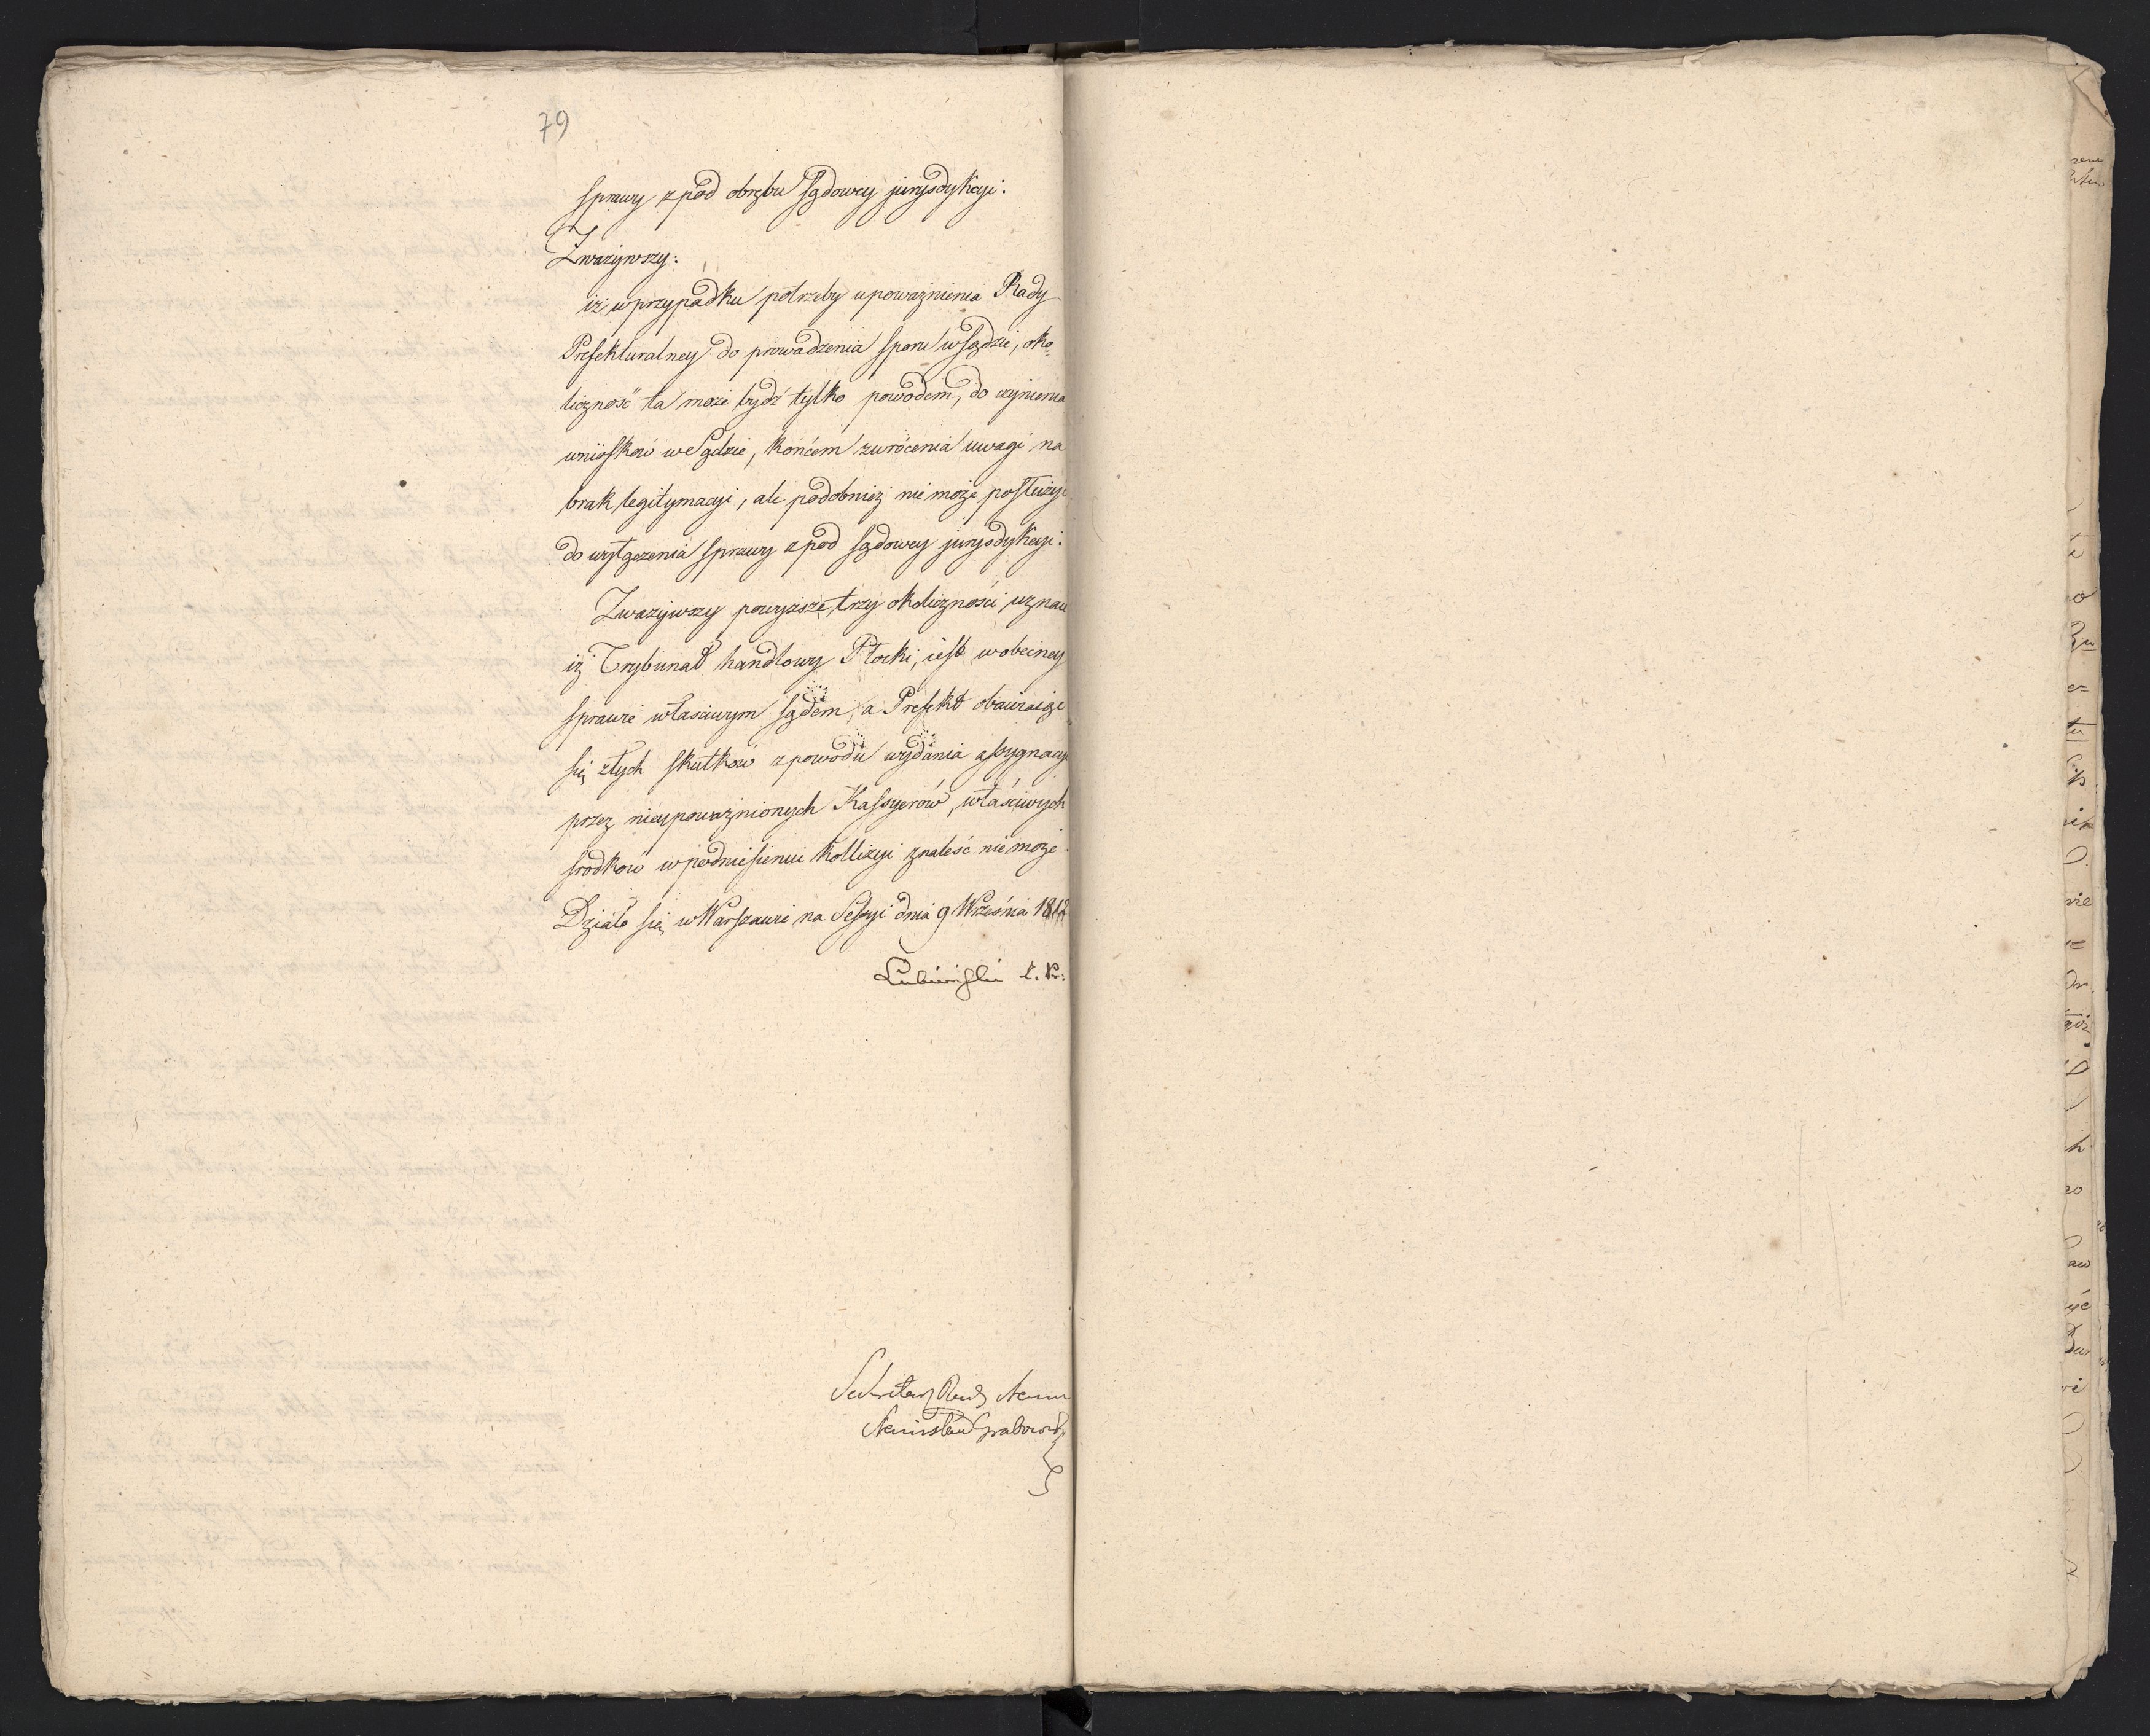 79
sprawy z pod obrębu sądowey jurysdykcyi:
Zważywszy:
iż w przypadku potrzeby upoważnienia Rady
Prefekturalney do prowadzenia sporu w sądzie, oko=
liczność ta może bydź tylko powodem, do czynienia
wniosków w Sądzie, końcem zwrócenia uwagi na
brak legitymacyi, ale podobnież nie może posłużyć
do wyłączenia sprawy z pod sądowey jurysdykcyi:
Zważywszy powyższe trzy okoliczności uznaie
iż Trybunał handlowy Płocki, iest w obecney
sprawie właściwym sądem, a Prefekt obawiaiąc
się złych skutków z powodu wydania assygnacyi
przez nieupoważnionych Kassyerów, właściwych
srodków w podniesieniu kollizyi znaleść nie może.
Działo się w Warszawie na Sessyi dnia 9 Września 1812
Lubieński
Sekretarz Rady Stanu
Stanisław Grabowski